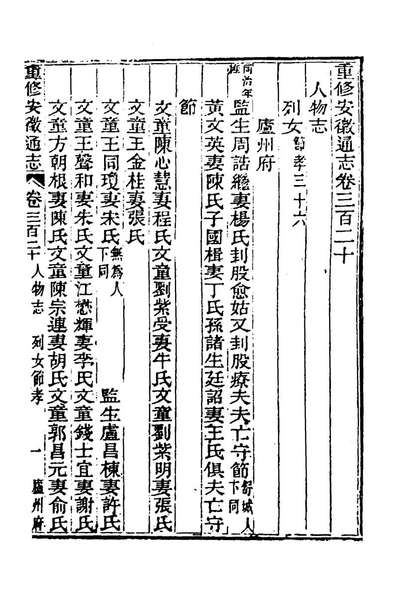 重修安徽通志卷三百二十
人物志
列女節孝三十六
廬州府
同治年
旌監生周誥繼妻楊氏刲股愈姑又刲股療夫夫亡守節舒城人下同
黃文英妻陳氏子國楫妻丁氏孫諸生廷詔妻王氏俱夫亡守
節
文童陳心慧妻程氏文童劉紫受妻牛氏文童劉紫明妻張氏
文童王金桂妻張氏
文童王同瓊妻朱氏無為人下同 監生盧昌棟妻許氏
文童王聲和妻朱氏文童江懋輝妻李氏文童錢士宜妻謝氏
文童方朝根妻陳氏文童陳宗連妻胡氏文童郭昌元妻俞氏
重修安徽通志 卷三百二十 人物志 列女節孝 一 廬州府